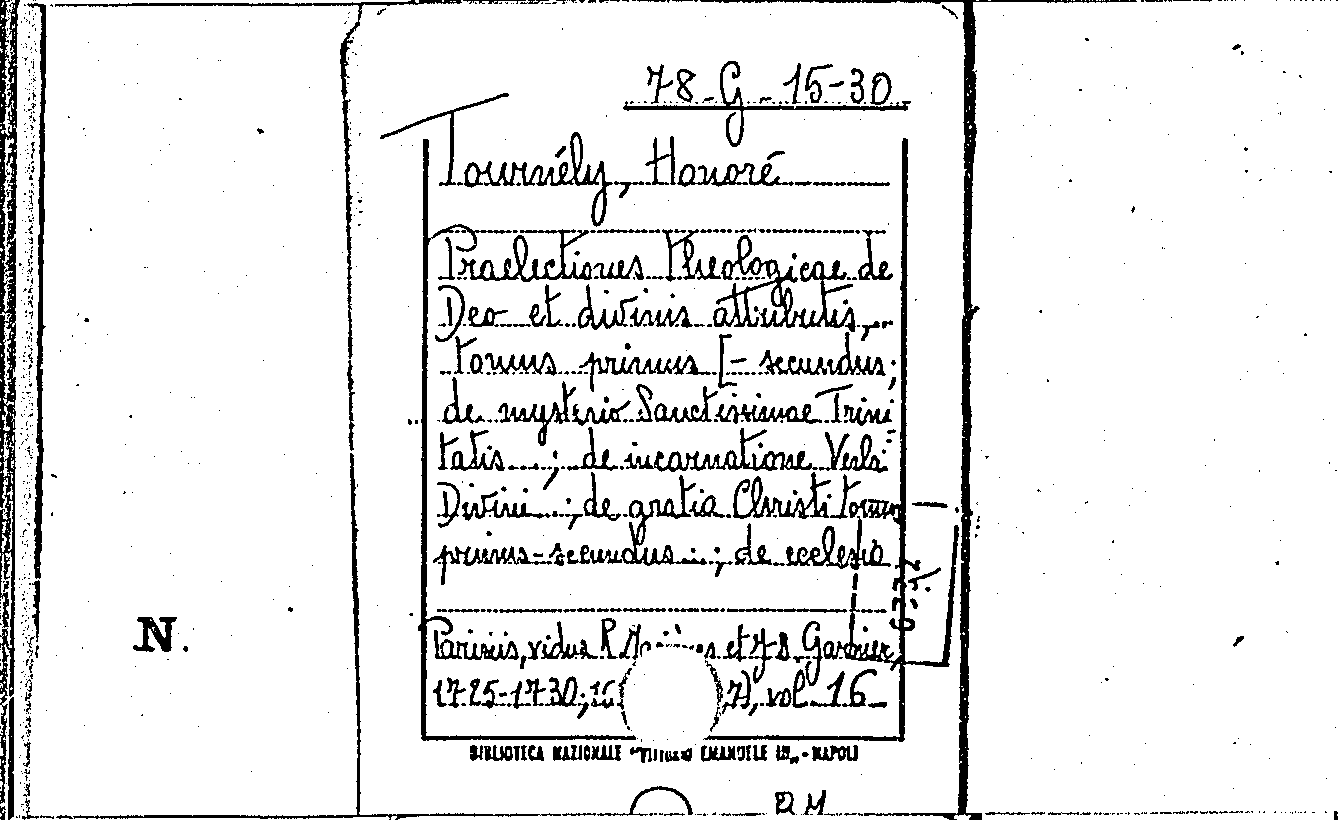 78-G-15-30
Tournély, Honoré
Praelectiones theologicae de
Deo et divinis attributis,..
tomus primus [- secundus;
de mysterio Sanctissimae Trini
tatis...; de incarnatione Verbi
Divini..; de gratia Christi tomus
primus-secundus..; de ecclesia
Parisiis, vidua R. et J. B. Garnier,
1725-1730; 16 7), vol. 16
BIBLIOTECA NAZIONALE "VITTORIO EMANUELE III" - NAPOLI
N.